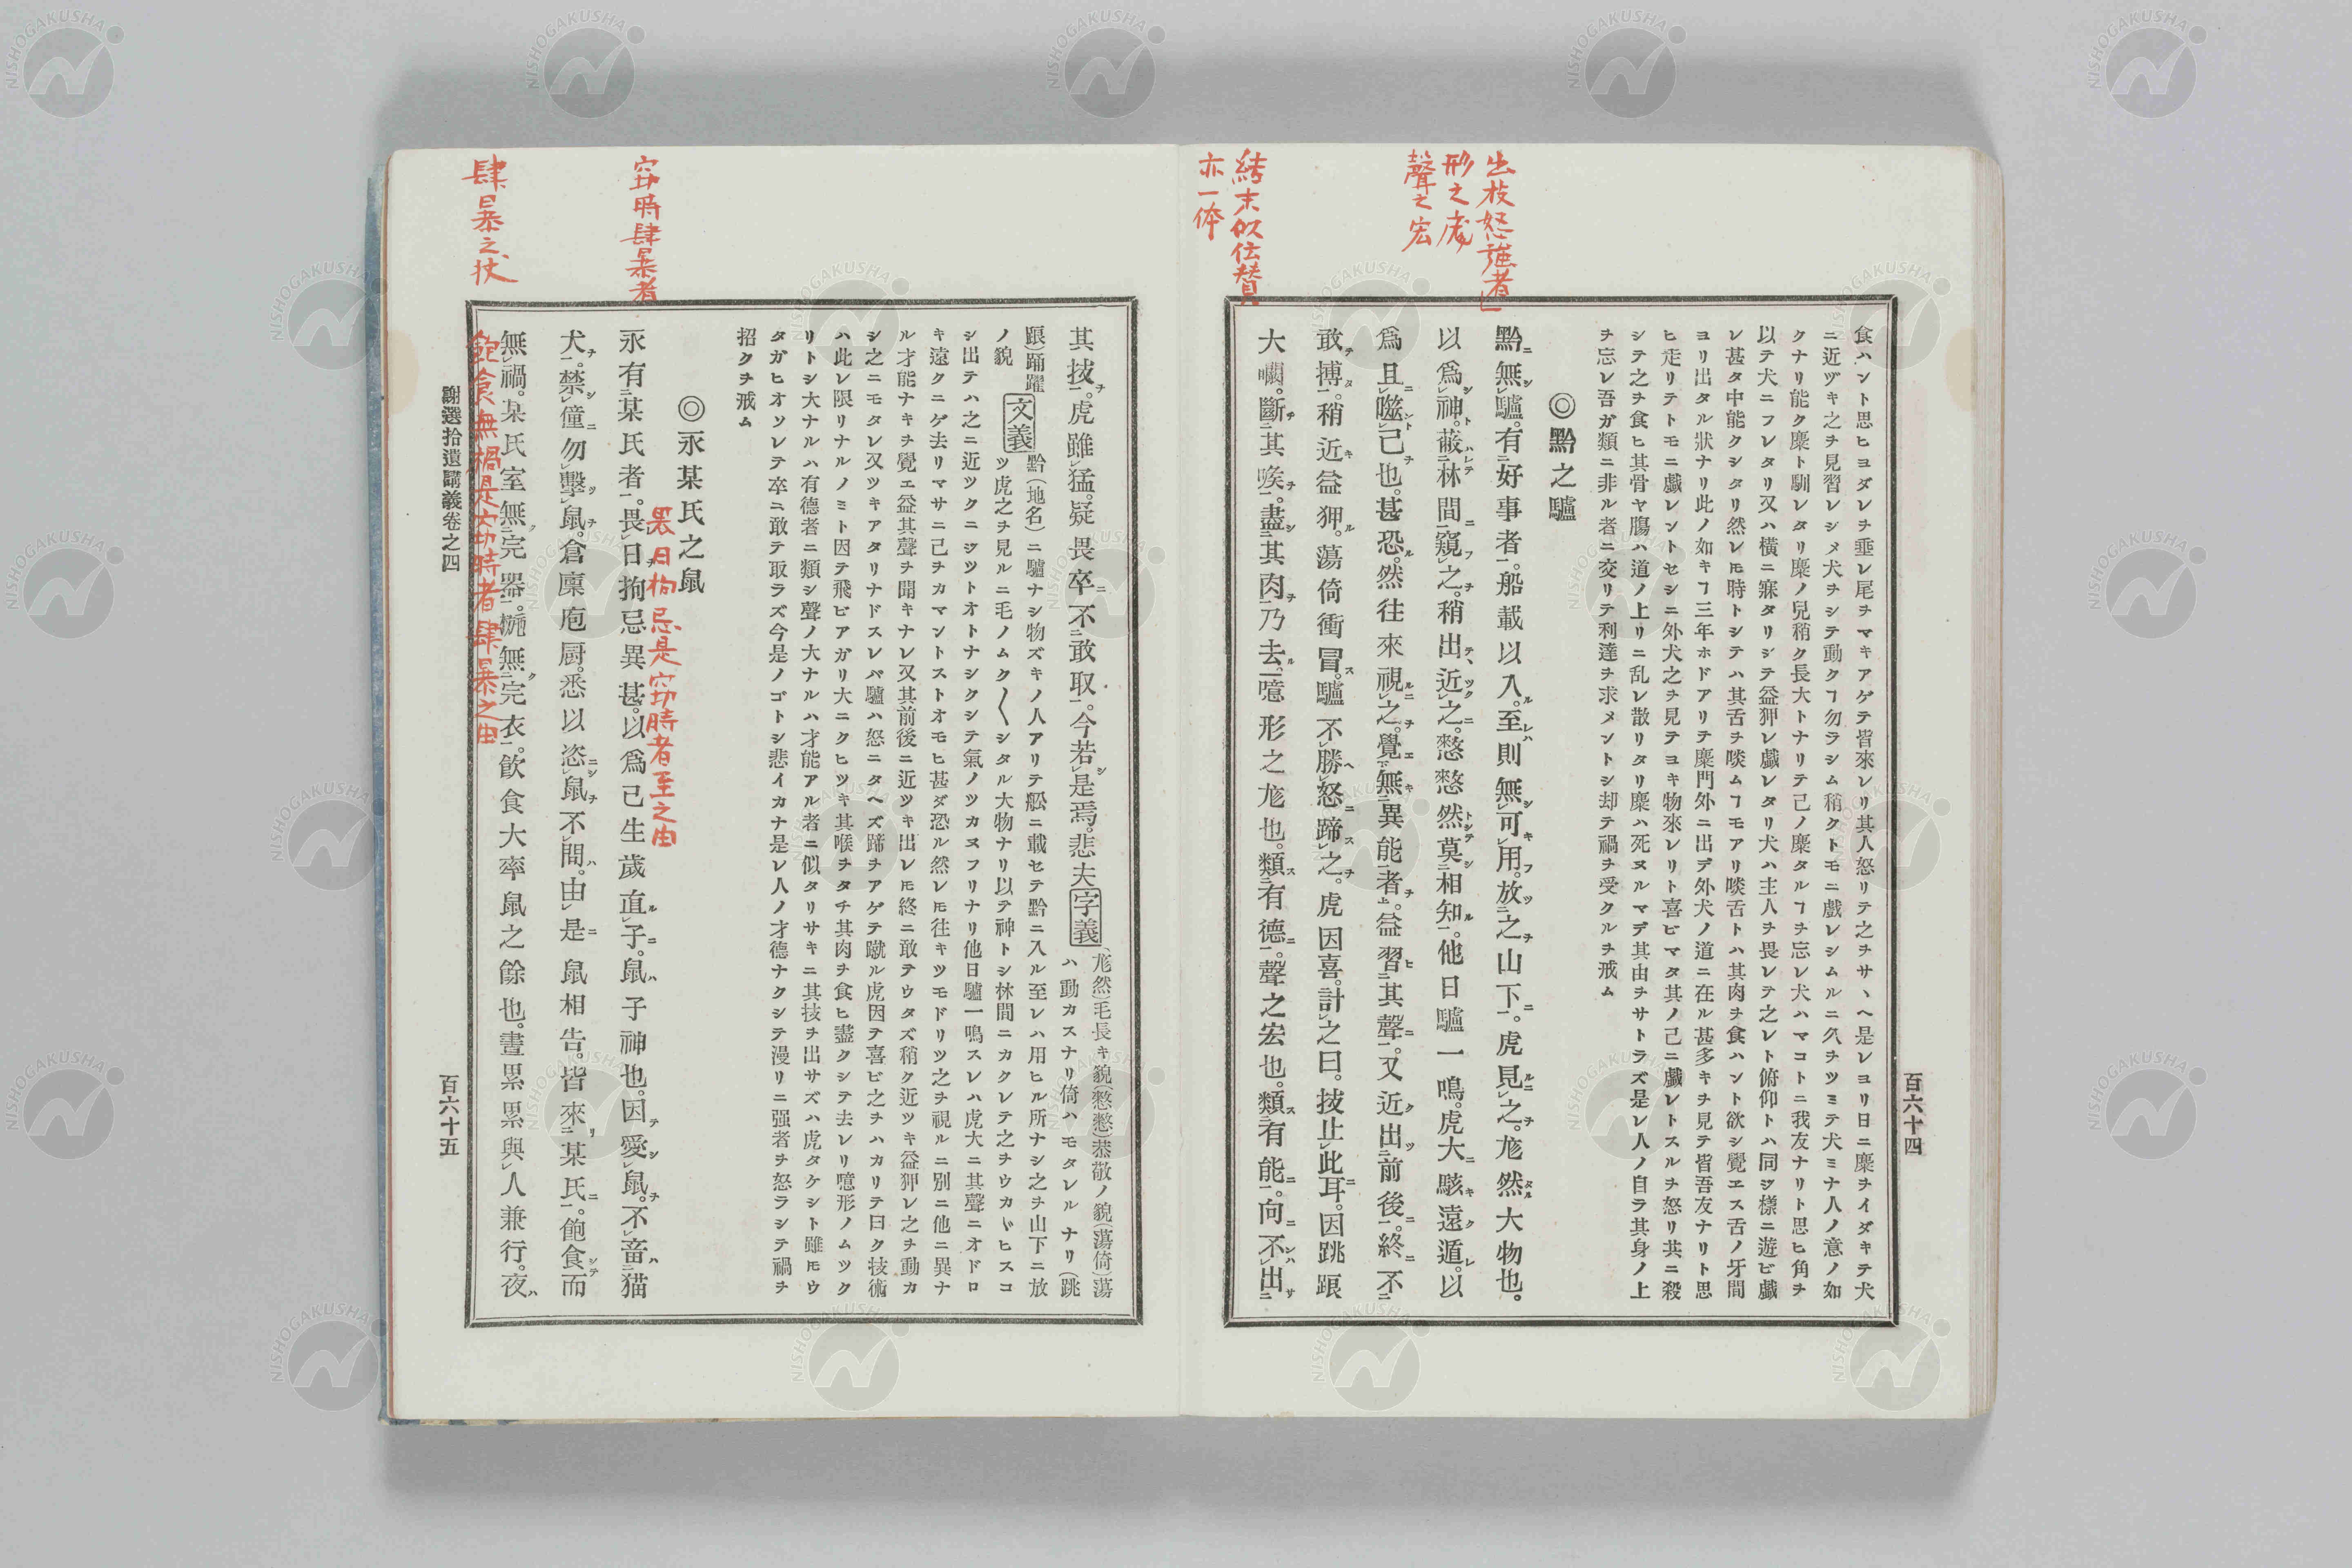 出技怒强者
形之尨
聲之宏
結末似仕贊
亦一体
百六十四
食ハント思ヒヨダレヲ垂レ尾ヲマキアゲテ皆來レリ其人怒リテ之ヲサヽヘ是レヨリ日ニ麋ヲイダキテ犬
ニ近ヅキ之ヲ見習レシメ犬ヲシテ動クヿ勿ラシム稍クトモニ戲レシムルニ久ヲツミテ犬ミナ人ノ意ノ如
クナリ能ク麋ト馴レタリ麋ノ兒稍ク長大トナリテ己ノ麋タルヿヲ忘レ犬ハマコトニ我友ナリト思ヒ角ヲ
以テ犬ニフレタリ又ハ橫ニ寐タリシテ益狎レ戲レタリ犬ハ主人ヲ畏レテ之レト俯仰トハ同ジ樣ニ遊ビ戲
レ甚タ中能クシタリ然レ𪜈時トシテハ其舌ヲ啖ムヿモアリ啖舌トハ其肉ヲ食ハント欲シ覺エス舌ノ牙間
ヨリ出タル狀ナリ此ノ如キヿ三年ホドアリテ麋門外ニ出デ外犬ノ道ニ在ル甚多キヲ見テ皆吾友ナリト思
ヒ走リテトモニ戲レントセシニ外犬之ヲ見テヨキ物來レリト喜ビマタ其ノ己ニ戲レトスルヲ怒リ共ニ殺
シテ之ヲ食ヒ其骨ヤ膓ハ道ノ上リニ乱レ散リタリ麋ハ死ヌルマデ其由ヲサトラズ是レ人ノ自ラ其身ノ上
ヲ忘レ吾ガ類ニ非ル者ニ交リテ利達ヲ求メントシ却テ禍ヲ受クルヲ戒ム
◎黔之驢
黔ニ無シ㆑驢。有㆓好事者㆒。船載以入ル。至レハ則無シ㆑可キ㆑用フ。放ツ㆓之ヲ山下ニ㆒。虎見ルニ㆑之ヲ。尨然タル大物也。
以爲シ㆑神ト。蔽ハレテ㆓林間ニ㆒窺フ㆑之ヲ。稍出テ、近ツク㆑之ニ。憖憖然トシテ莫シ㆓相知ル㆒。他日驢一鳴。虎大ニ駭キ遠ク遁レ。以
爲㆓且ニント㆑噬㆑己ヲ也。甚恐ル。然往來視ルニ㆑之ヲ。覺エ㆘無キ㆓異能㆒者ヲ㆖。益習ヒ㆓其聲ニ㆒。又近ク出ツ㆓前後ニ㆒。終ニ不㆓
敢テ搏タ㆒。稍近キ益狎ル。蕩倚衝冒ス。驢不㆑勝ヘ㆑怒ニ蹄ス㆑之ヲ。虎因喜。計㆑之曰。技止㆑此耳ニ。因跳踉
大㘎。斷チ㆓其喉ヲ㆒。盡シ㆓其肉ヲ㆒乃去ル。噫形之尨也。類ス㆑有㆑德ニ。聲之宏也。類ス㆑有㆑能ニ。向ニ不ンハ㆑出サ㆓
窃時肆暴者
肆暴之状
其技ヲ㆒。虎雖㆑猛。疑畏卒ニ不㆓敢取㆒。今若シ㆑是焉。悲夫字義(尨然)毛長キ貌(憖憖)恭敬ノ貌(蕩倚)蕩
ハ動カスナリ倚ハモタレルナリ(跳
踉)踊躍
ノ貌
文義黔(地名)ニ驢ナシ物ズキノ人アリテ舩ニ載セテ黔ニ入ル至レハ用ヒル所ナシ之ヲ山下ニ放
ツ虎之ヲ見ルニ毛ノムク〱シタル大物ナリ以テ神トシ林間ニカクレテ之ヲウカヾヒスコ
シ出テハ之ニ近ツクニジツトオトナシクシテ氣ノツカヌフリナリ他日驢一鳴スレハ虎大ニ其聲ニオドロ
キ遠クニゲ去リマサニ己ヲカマントストオモヒ甚ダ恐ル然レ𪜈往キツモドリツ之ヲ視ルニ別ニ他ニ異ナ
ル才能ナキヲ覺エ益其聲ヲ聞キナレ又其前後ニ近ツキ出レ𪜈終ニ敢テウタズ稍ク近ツキ益狎レ之ヲ動カ
シ之ニモタレ又ツキアタリナドスレバ驢ハ怒ニタヘズ蹄ヲアゲテ蹴ル虎因テ喜ビ之ヲハカリテ曰ク技術
ハ此レ限リナルノミト因テ飛ビアガリ大ニクヒツキ其喉ヲタチ其肉ヲ食ヒ盡クシテ去レリ噫形ノムツク
リトシ大ナルハ有德者ニ類シ聲ノ大ナルハ才能アル者ニ似タリサキニ其技ヲ出サズハ虎タケシト雖𪜈ウ
タガヒオソレテ卒ニ敢テ取ラズ今是ノゴトシ悲イカナ是レ人ノ才德ナクシテ漫リニ强者ヲ怒ラシテ禍ヲ
招クヲ戒ム
◎永某氏之鼠
畏日拘忌是窃時者至之由
永有㆓某氏者㆒。畏㆑日拘忌異甚。以爲己生歲直ル㆑子ニ。鼠ハ子神也。因テ愛シ㆑鼠ヲ。不㆑畜ハ㆓猫
犬ヲ㆒。禁シ㆑僮ニ勿㆑擊ツ㆑鼠ヲ。倉廩庖厨。悉以恣ニシ㆑鼠ヲ不㆑問ハ。由㆑是ニ鼠相吿。皆來リ㆓某氏ニ㆒。飽食シテ而
無㆑禍。某氏室無ク㆓完器㆒。椸無ク㆓完衣㆒。飮食大率鼠之餘也。晝累累與㆑人兼行。夜ハ
飽食無禍是六窃時者肆暴之由
謝選拾遺講義卷之四
百六十五